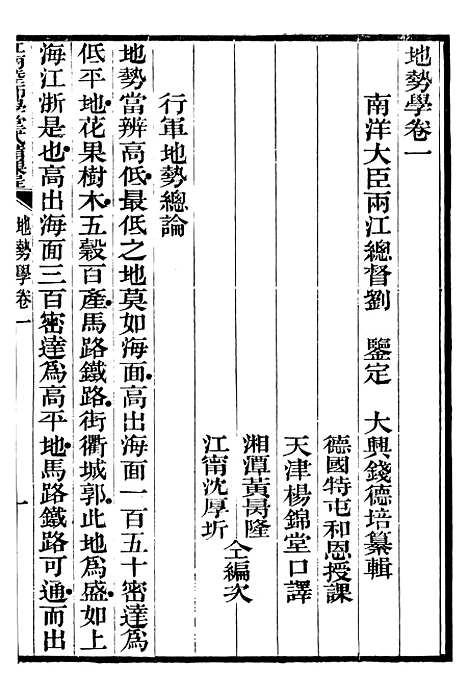 地勢學卷一
南洋大臣兩江總督劉　鑒定　大興錢德培纂輯
德國特屯和恩授課
天津楊錦堂口譯
湘潭黃勗隆
江甯沈厚圻
仝編次
行軍地勢總論
地勢當辨高低最低之地莫如海面高出海面一百五十密達爲
低平地花果樹木五穀百產馬路鐵路街衢城郭此地爲盛如上
海江浙是也高出海面三百密達爲高平地馬路鐵路可通而出
地勢學卷一
一